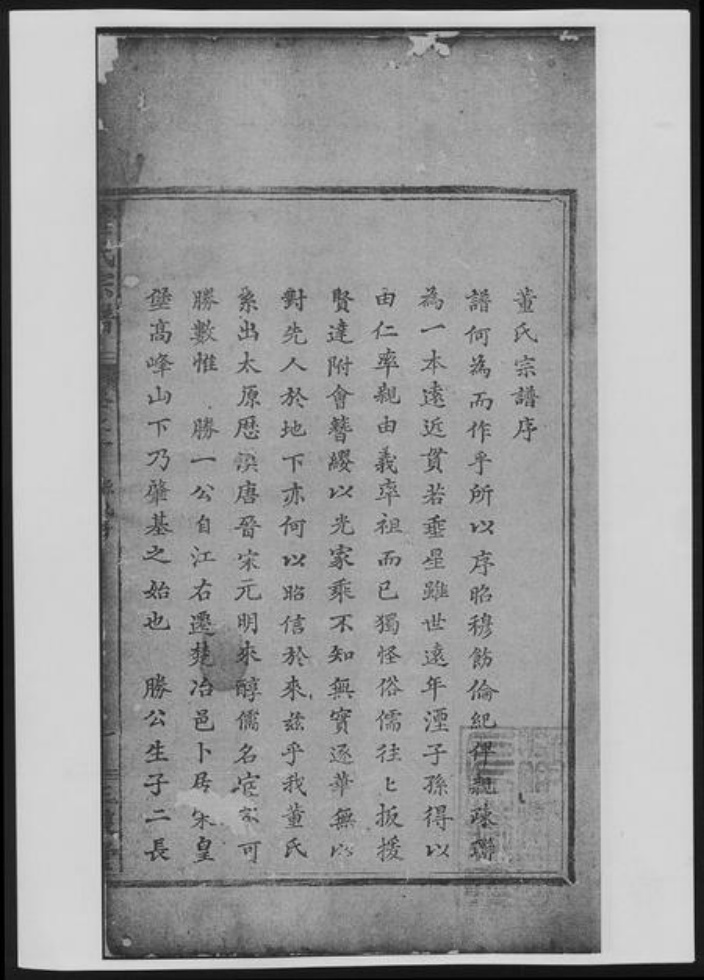 董氏宗譜序
譜何為而作乎所以序昭穆飭倫紀俾親疎聯
為一本遠近貫若垂星雖世遠年湮子孫得以
由仁率親由義率祖而已獨怪俗儒往〻扳援
賢達附會簪纓以光家乘不知無實逐華無以
對先人於地下亦何以昭信於來茲乎我董氏
系出太原歷漢唐晉宋元明來醇儒名宦不可
勝數惟 勝一公自江右遷楚冶邑卜居宋皇
堡高峰山下乃肇基之始也 勝公生子二長
氏宗譜